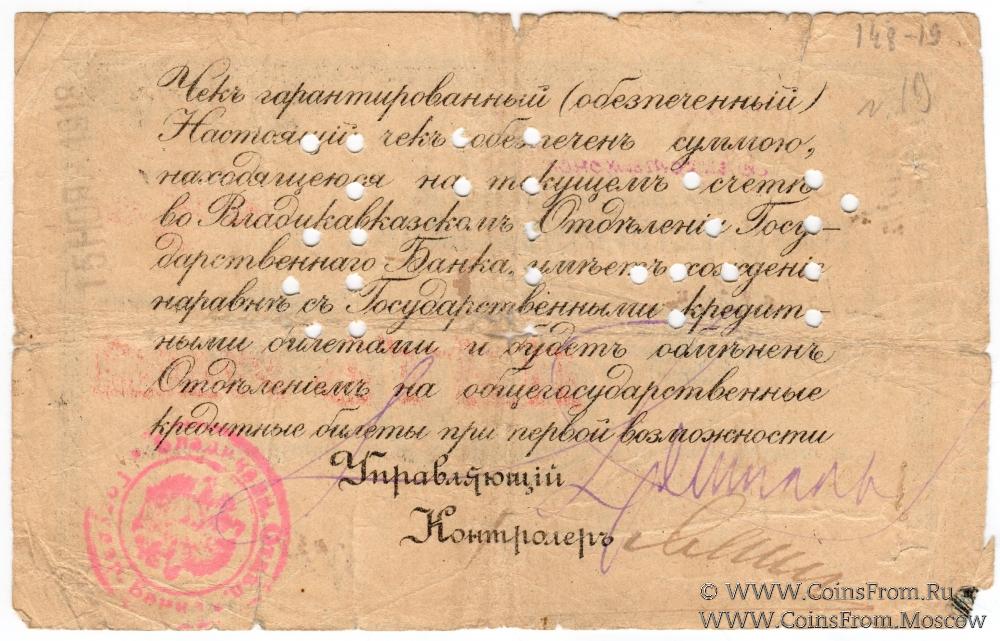 148-19
19
Чекъ гарантированный (обезпеченный)
Настоящій чекъ обезпеченъ суммою,
находящеюся на текущемъ счетѣ
во Владикавказскомъ Отдѣленіи Госу-
дарственнаго Банка, имѣетъ хожденіе
наравнѣ съ Государственными кредит-
ными билетами и будетъ обмѣненъ
Отдѣленіемъ на общегосударственные
кредитные билеты при первой возможности
Управляющій
Контролеръ
© WWW.CoinsFrom.Ru
WWW.CoinsFrom.Moscow